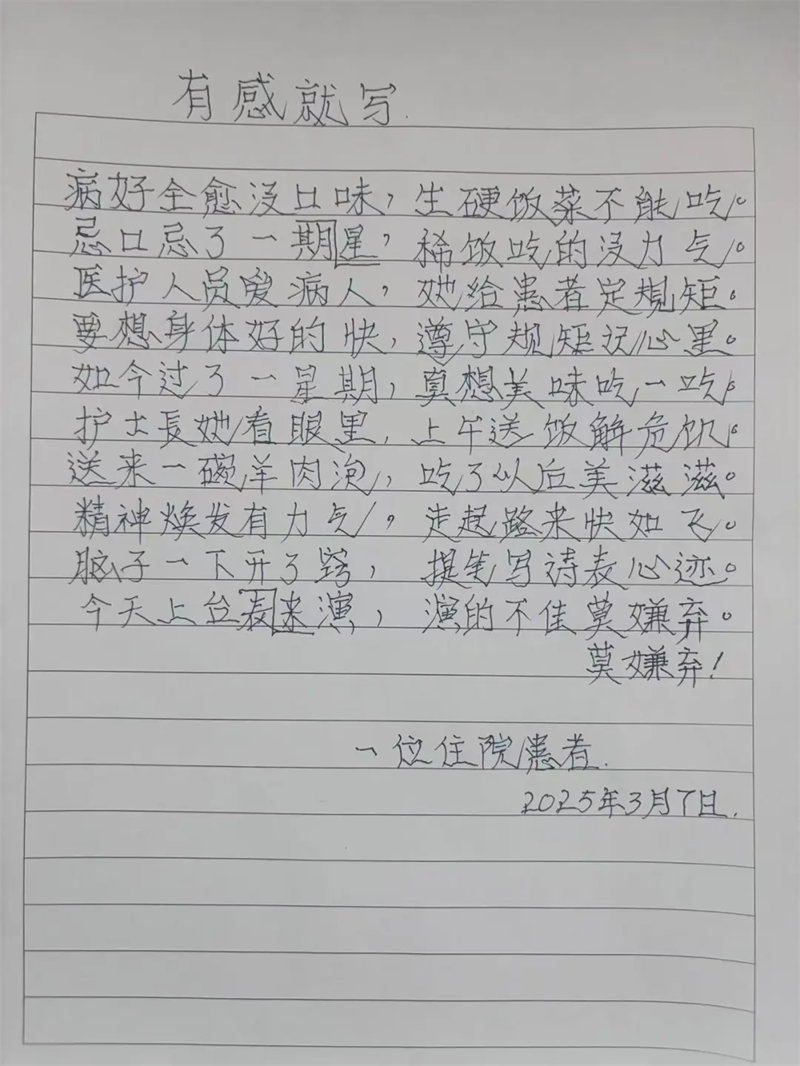 有感就写.
病好全愈没口味，生硬饭菜不能吃。
忌口忌了一期星，稀饭吃的没力气。
医护人员爱病人，她给患者定规矩。
要想身体好的快，遵守规矩记心里。
如今过了一星期，真想美味吃一吃。
护士長她看眼里，上午送饭解危饥。
送来一碗羊肉泡，吃了以后美滋滋。
精神焕发有力气，走起路来快如飞。
脑子一下开了窍，提笔写诗表心迹。
今天上台表来演，演的不佳莫嫌弃。
莫嫌弃！
一位住院患者.
2025年3月7日.